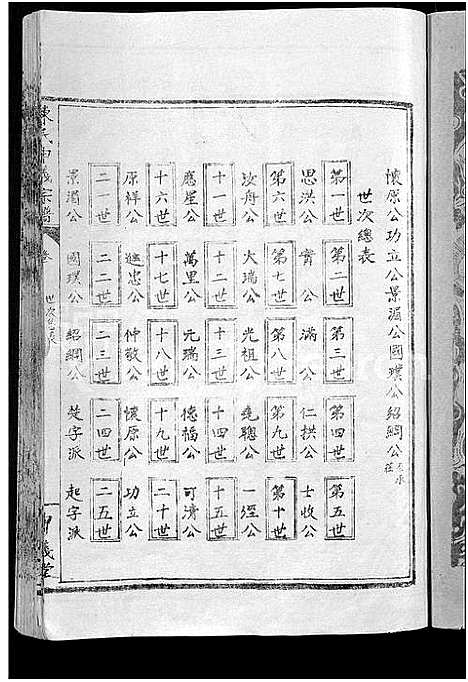 懷原公功立公景湄公國璞公紹綱公
世次總表
第一世 第二世 第三世 第四世 第五世
思洪公 實公 滿公 仁拱公 士收公
第六世 第七世 第八世 第九世 第十世
汝舟公 大瑞公 光祖公 堯聰公 一經公
十一世 十二世 十三世 十四世 十五世
應星公 萬里公 元瑞公 德福公 可清公
十六世 十七世 十八世 十九世 二十世
原祥公 進忠公 仲敬公 懷原公 功立公
二一世 二二世 二三世 二四世 二五世
景湄公 國璞公 紹綱公 焚字派 起字派
陳氏 宗譜
卷
世次總表
義堂